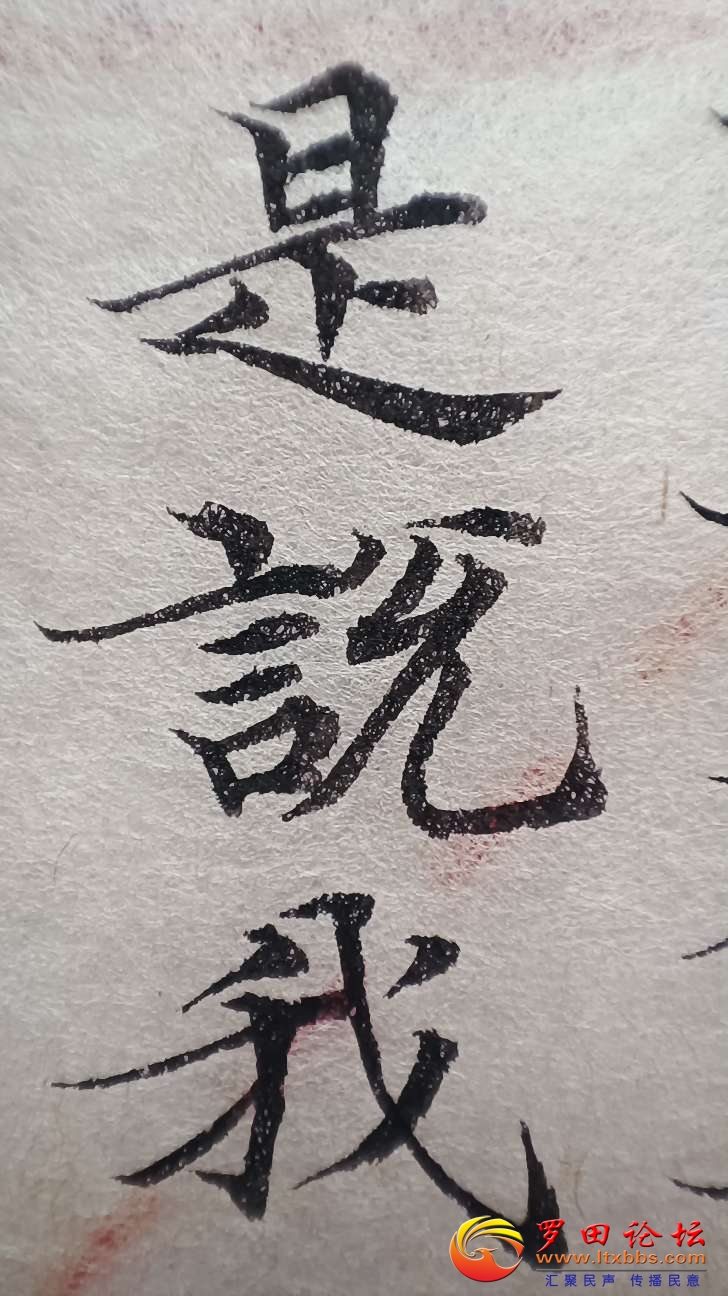 是說我
罗田论坛
www.ltxbbs.com
汇聚民声 传播民意